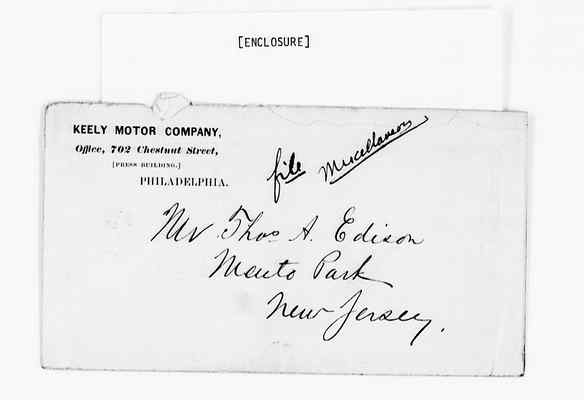 [ENCLOSURE]
KEELY MOTOR COMPANY,
Office, 702 Chestnut Street,
[PRESS BUILDING.]
PHILADELPHIA.
file Miscellaneous
Mr Thos A. Edison
Menlo Park
New Jersey.